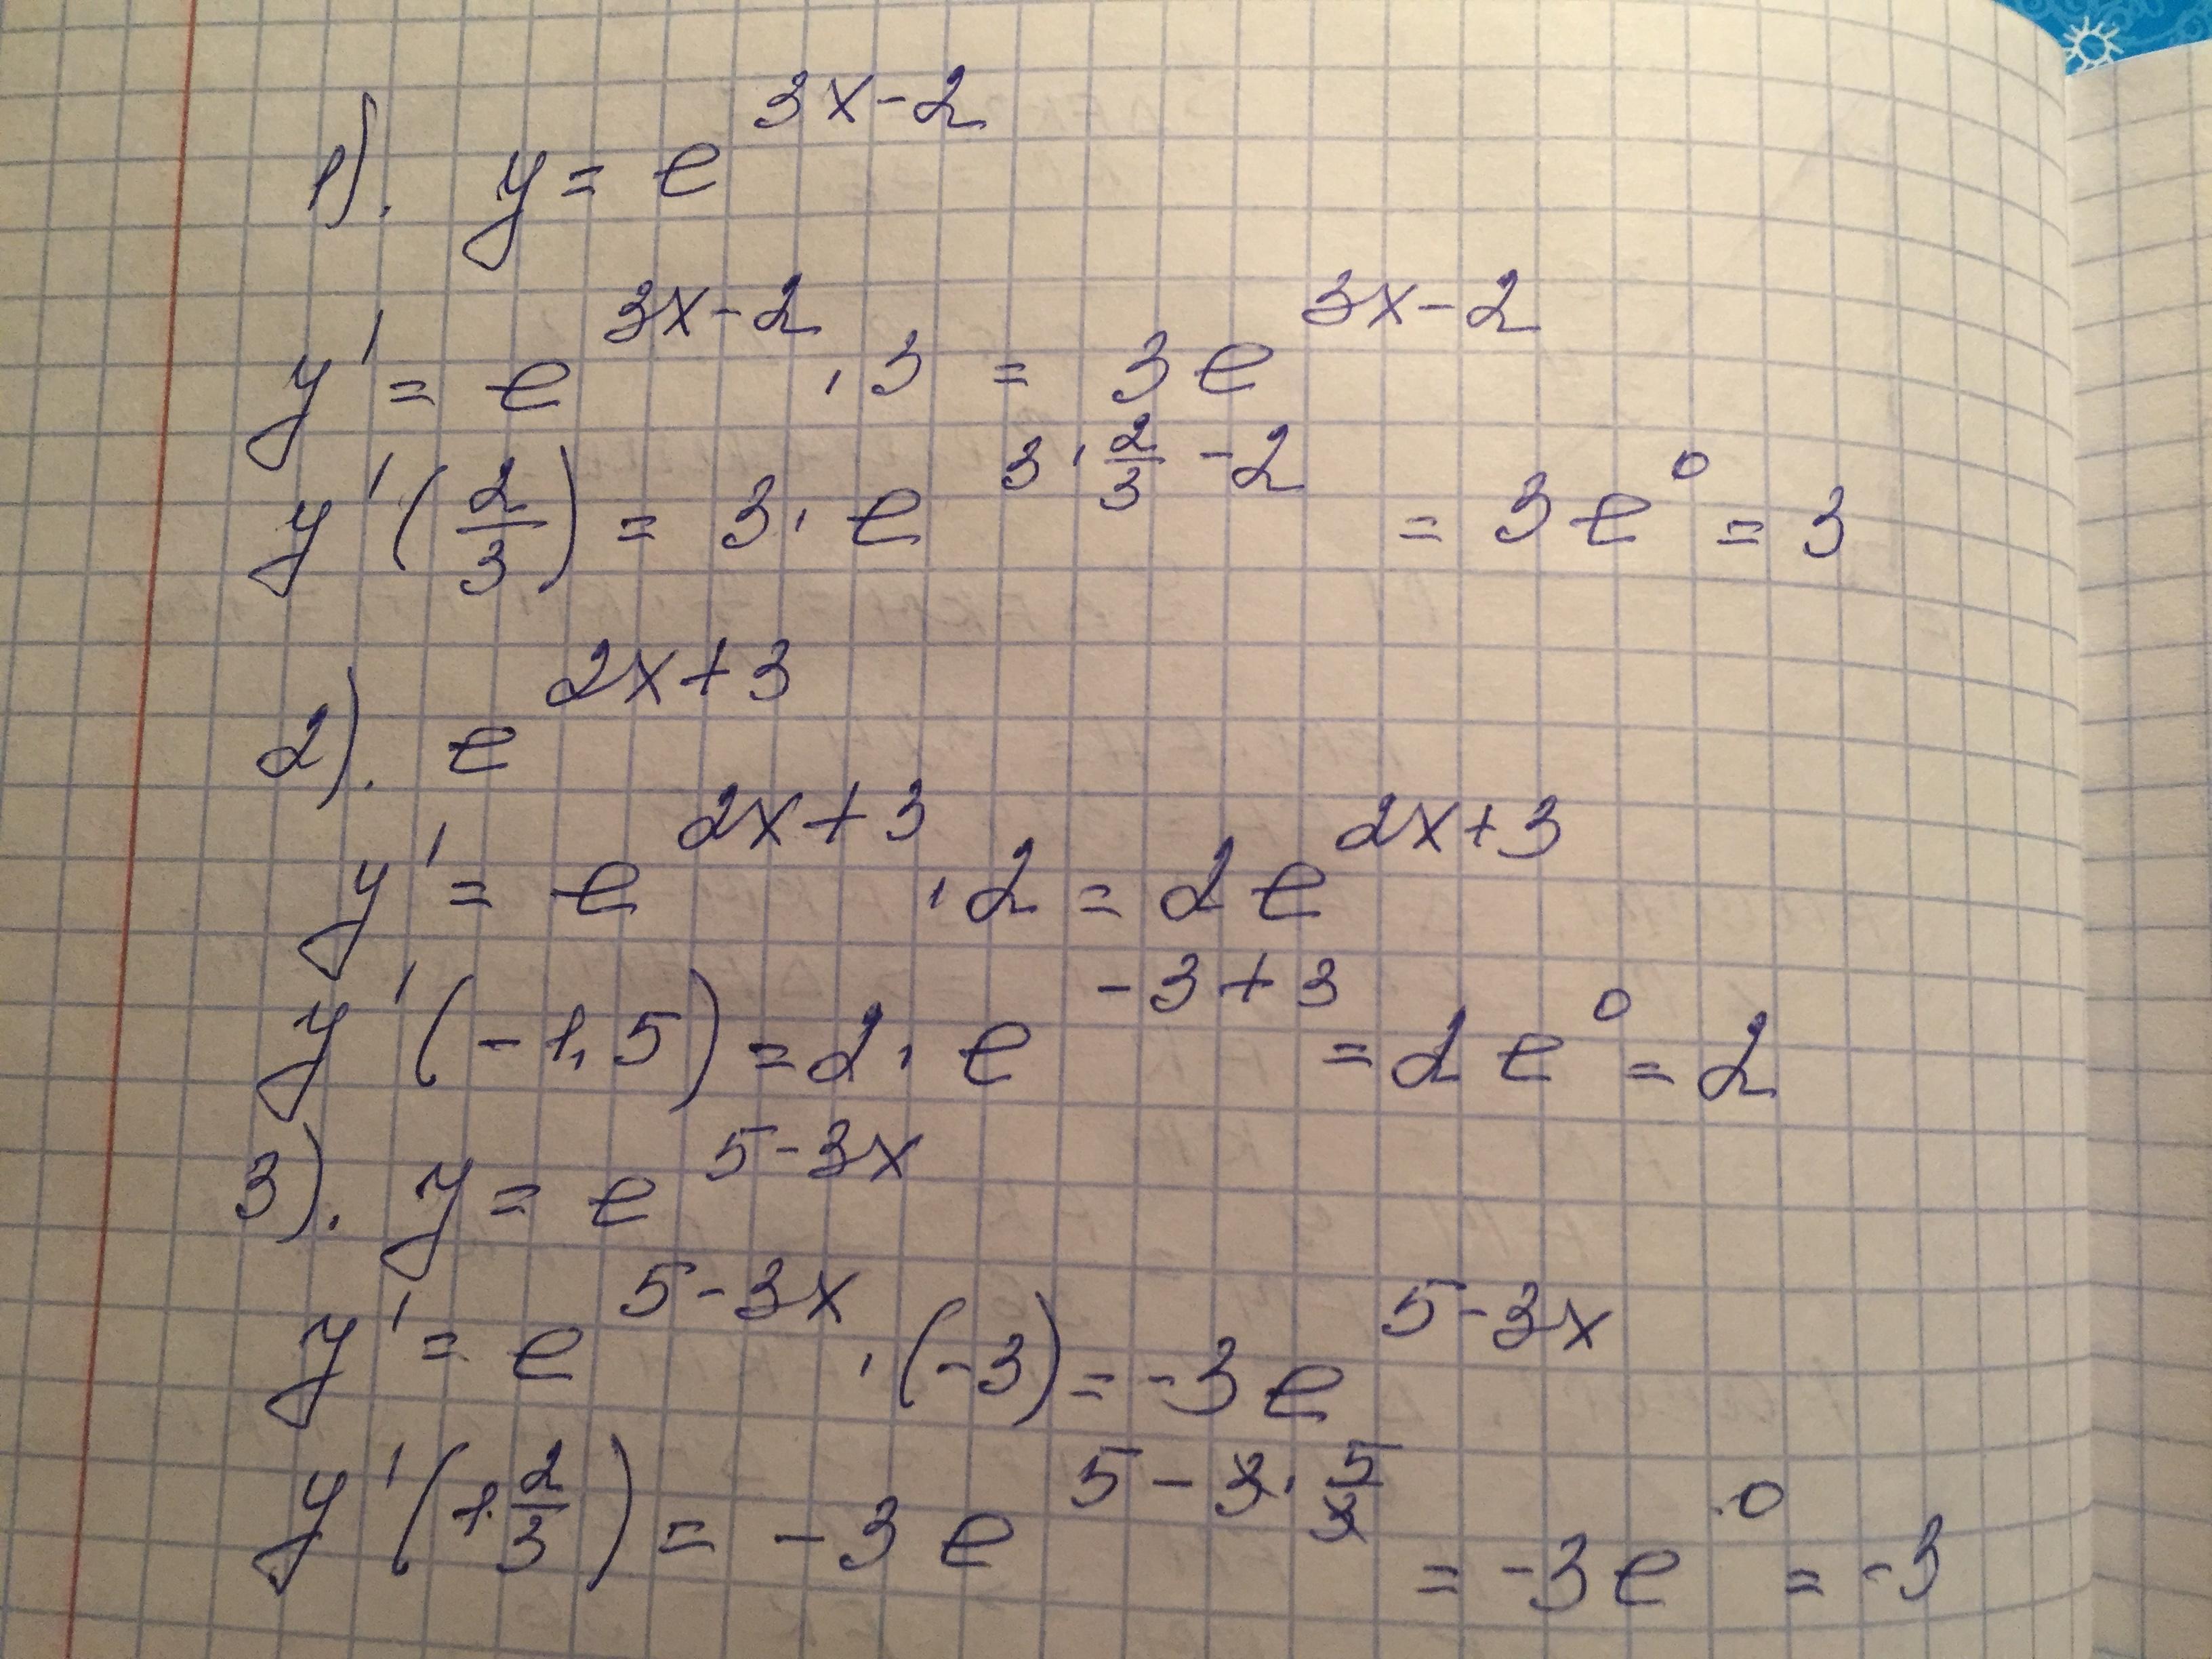 1). y = e^{3x-2}
y' = e^{3x-2} · 3 = 3e^{3x-2}
y'(2/3) = 3 · e^{3 · 2/3 - 2} = 3e^0 = 3
2). e^{2x+3}
y' = e^{2x+3} · 2 = 2e^{2x+3}
y'(-1,5) = 2 · e^{-3+3} = 2e^0 = 2
3). y = e^{5-3x}
y' = e^{5-3x} · (-3) = -3e^{5-3x}
y'(1 2/3) = -3e^{5-3 · 5/3} = -3e^0 = -3